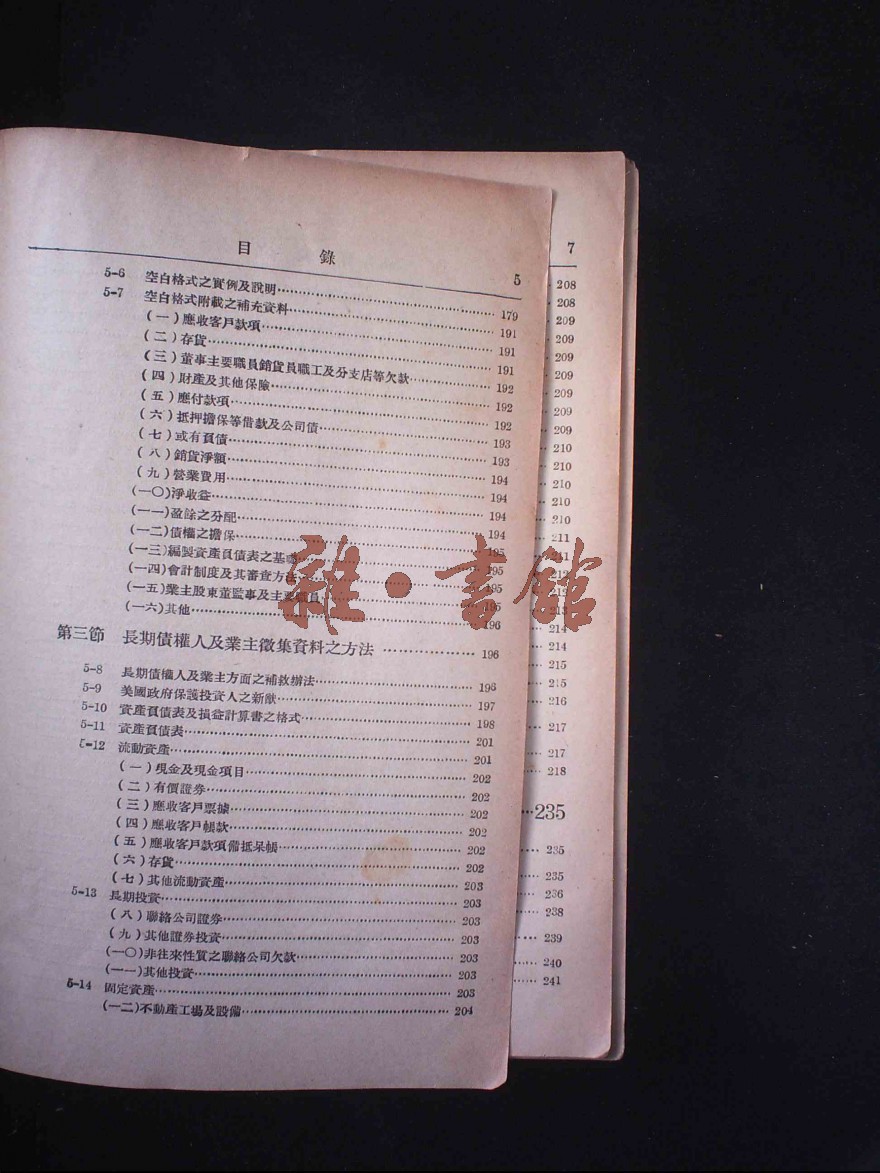 目 錄 5
5-6 空白格式之實例及說明 179
5-7 空白格式附載之補充資料 191
(一)應收客戶款項 191
(二)存貨 191
(三)董事主要職員銷貨員職工及分支店等欠款 192
(四)財產及其他保險 192
(五)應付款項 192
(六)抵押擔保等借款及公司債 193
(七)或有負債 193
(八)銷貨淨額 194
(九)營業費用 194
(一〇)淨收益 194
(一一)盈餘之分配 194
(一二)債權之擔保 195
(一三)編製資產負債表之基礎 195
(一四)會計制度及其審查方法 195
(一五)業主股東董監事及主要職員 195
(一六)其他 196
第三節 長期債權人及業主徵集資料之方法 196
5-8 長期債權人及業主方面之補救辦法 196
5-9 美國政府保護投資人之新猷 197
5-10 資產負債表及損益計算書之格式 198
5-11 資產負債表 201
5-12 流動資產 201
(一)現金及現金項目 202
(二)有價證券 202
(三)應收客戶票據 202
(四)應收客戶帳款 202
(五)應收客戶款項備抵呆帳 202
(六)存貨 202
(七)其他流動資產 203
5-13 長期投資 203
(八)聯絡公司證券 203
(九)其他證券投資 203
(一〇)非往來性質之聯絡公司欠款 203
(一一)其他投資 203
5-14 固定資產 203
(一二)不動產工場及設備 204
7
208
208
209
209
209
209
209
209
209
210
210
210
210
210
211
211
212
213
214
214
215
215
216
217
217
218
235
235
235
236
238
239
240
241
雜·書館